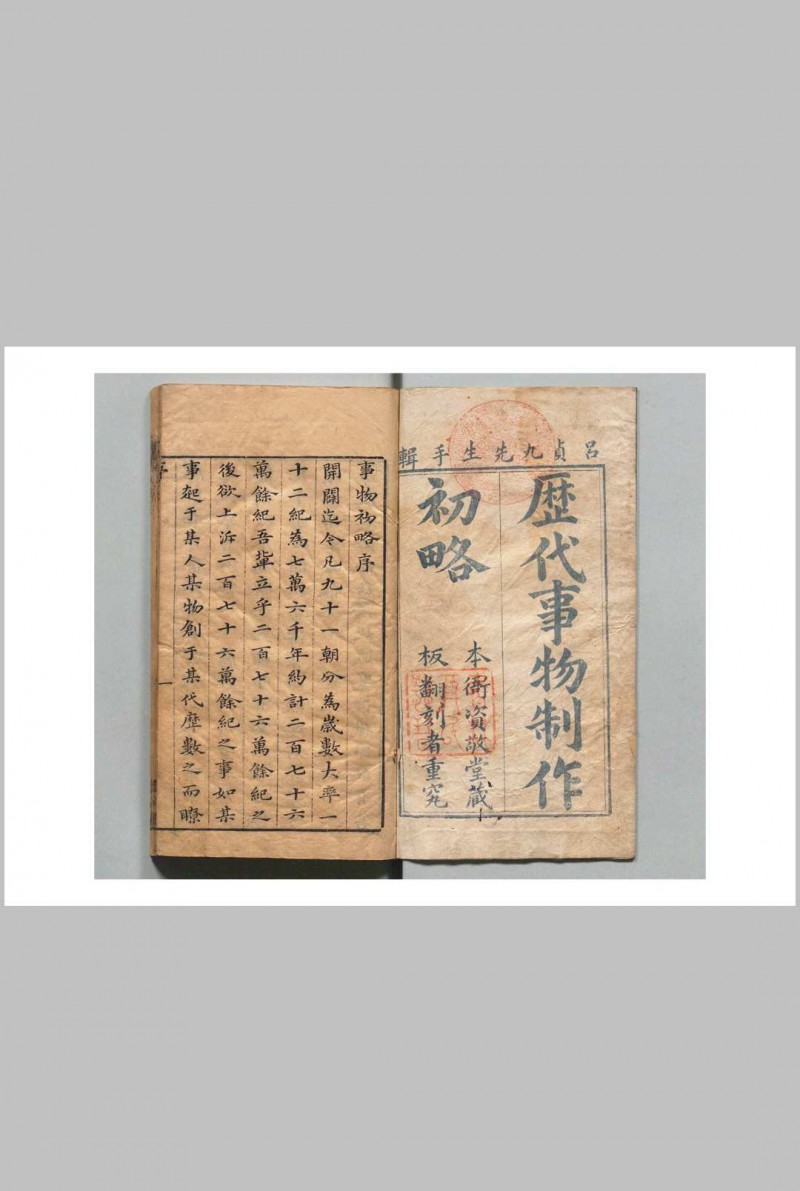 呂貞九先生手輯
歷代事物制作
初略
本衙資敬堂藏
板翻刻者重究
事物初略序
開闢迄今凡九十一朝分為歲數大率一
十二紀為七萬六千年約計二百七十六
萬餘紀吾輩立乎二百七十六萬餘紀之
後欲上泝二百七十六萬餘紀之事如某
事起于某人某物創于某代歷數之而瞭
序
一